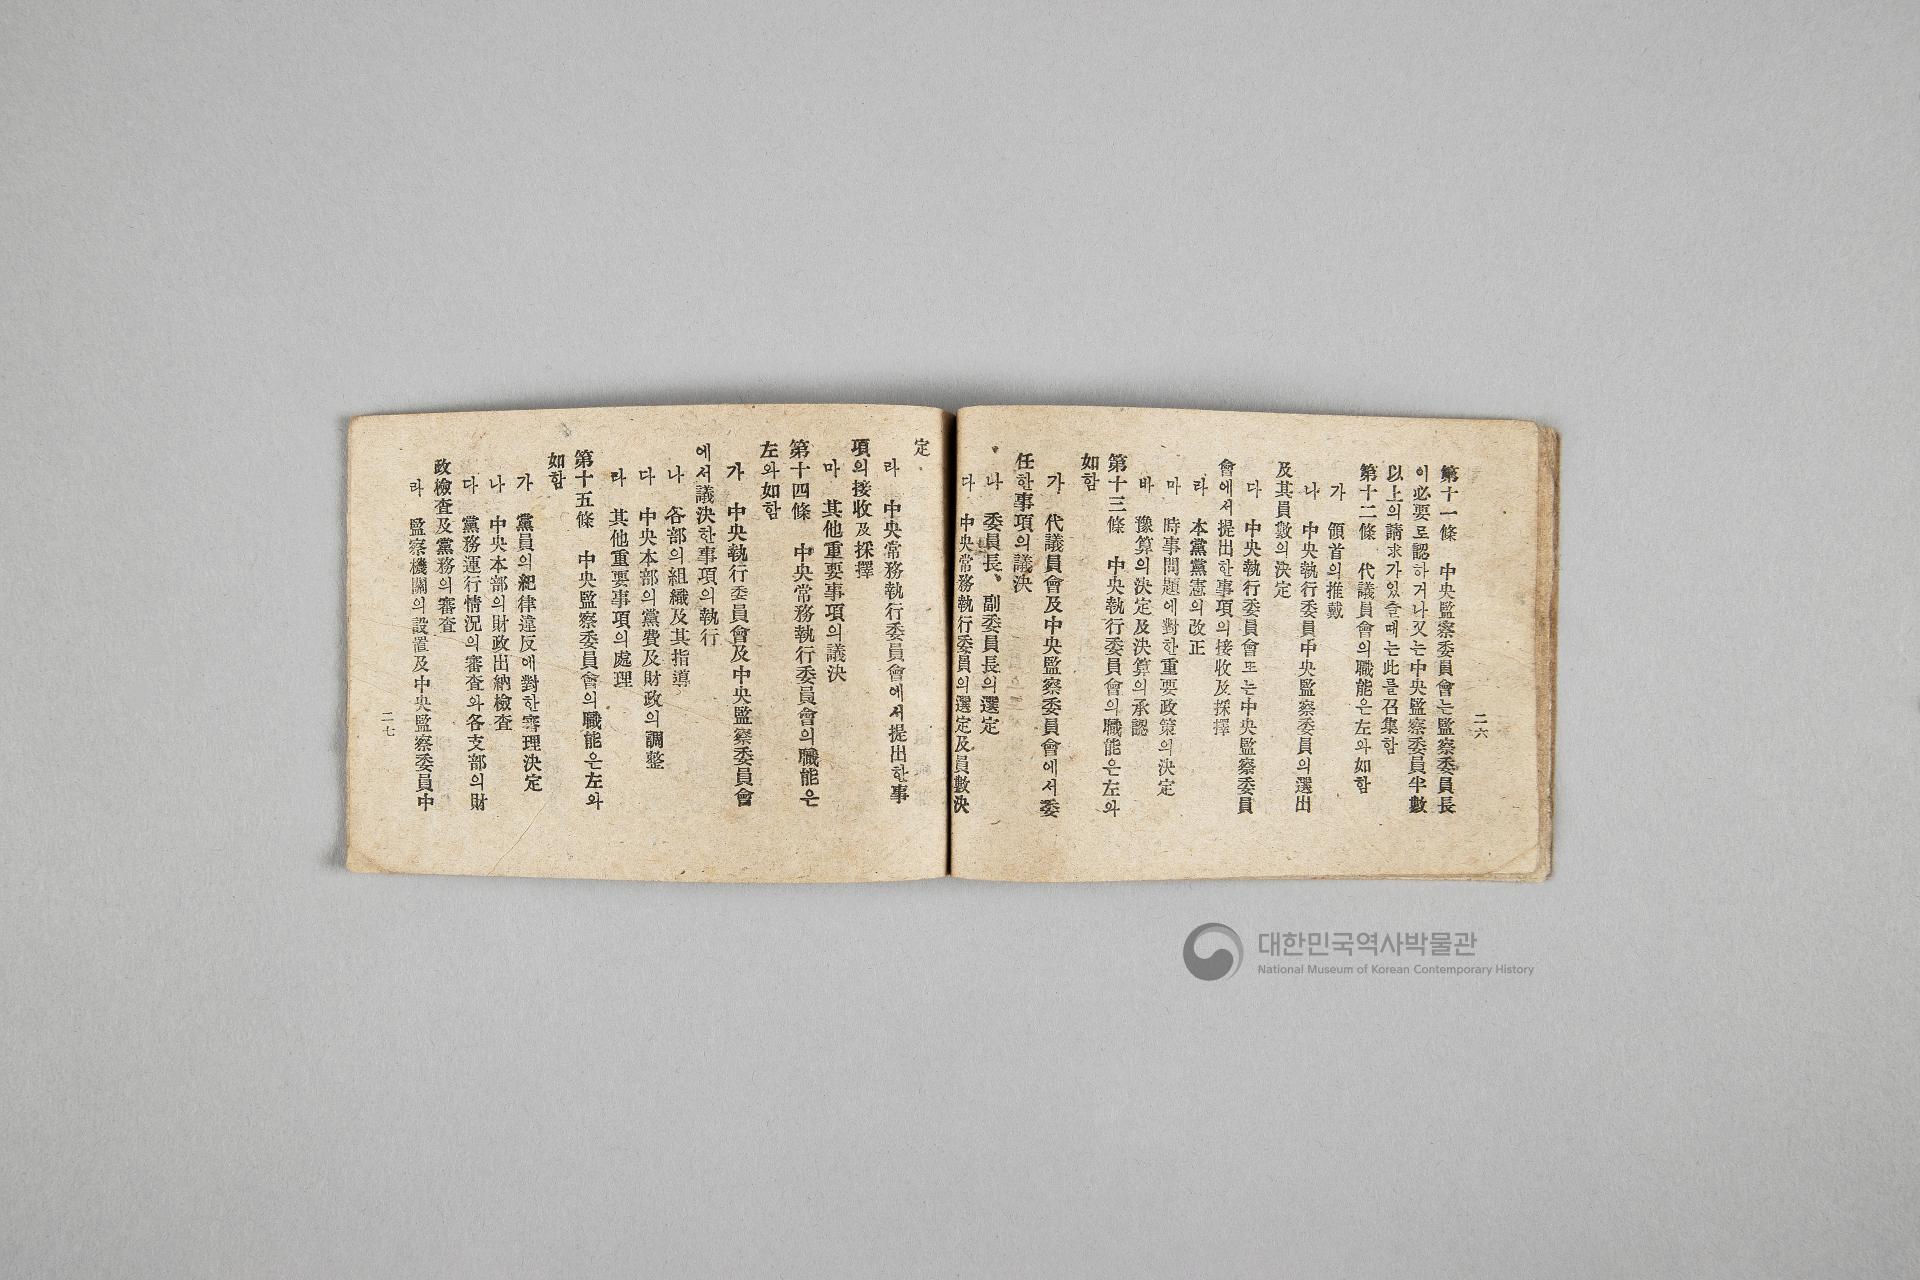 二六
第十一條　中央監察委員會는監察委員長
이必要로認하거나又는中央監察委員半數
以上의請求가있슬때는此를召集함
第十二條　代議員會의職能은左와如함
가　領首의推戴
나　中央執行委員中央監察委員의選出
及其員數의決定
다　中央執行委員會또는中央監察委員
會에서提出한事項의接收及採擇
라　本黨黨憲의改正
마　時事問題에對한重要政策의決定
바　豫算의決定及決算의承認
第十三條　中央執行委員會의職能은左와
如함
가　代議員會及中央監察委員會에서委
任한事項의議決
나　委員長、副委員長의選定
다　中央常務執行委員의選定及員數決
定
라　中央常務執行委員會에서提出한事
項의接收及採擇
마　其他重要事項의議決
第十四條　中央常務執行委員會의職能은
左와如함
가　中央執行委員會及中央監察委員會
에서議決한事項의執行
나　各部의組織及其指導
다　中央本部의黨費及財政의調整
라　其他重要事項의處理
第十五條　中央監察委員會의職能은左와
如함
가　黨員의紀律違反에對한審理決定
나　中央本部의財政出納檢査
다　黨務運行情況의審査와各支部의財
政檢査及黨務의審査
라　監察機關의設置及中央監察委員中
二七
대한민국역사박물관
National Museum of Korean Contemporary History